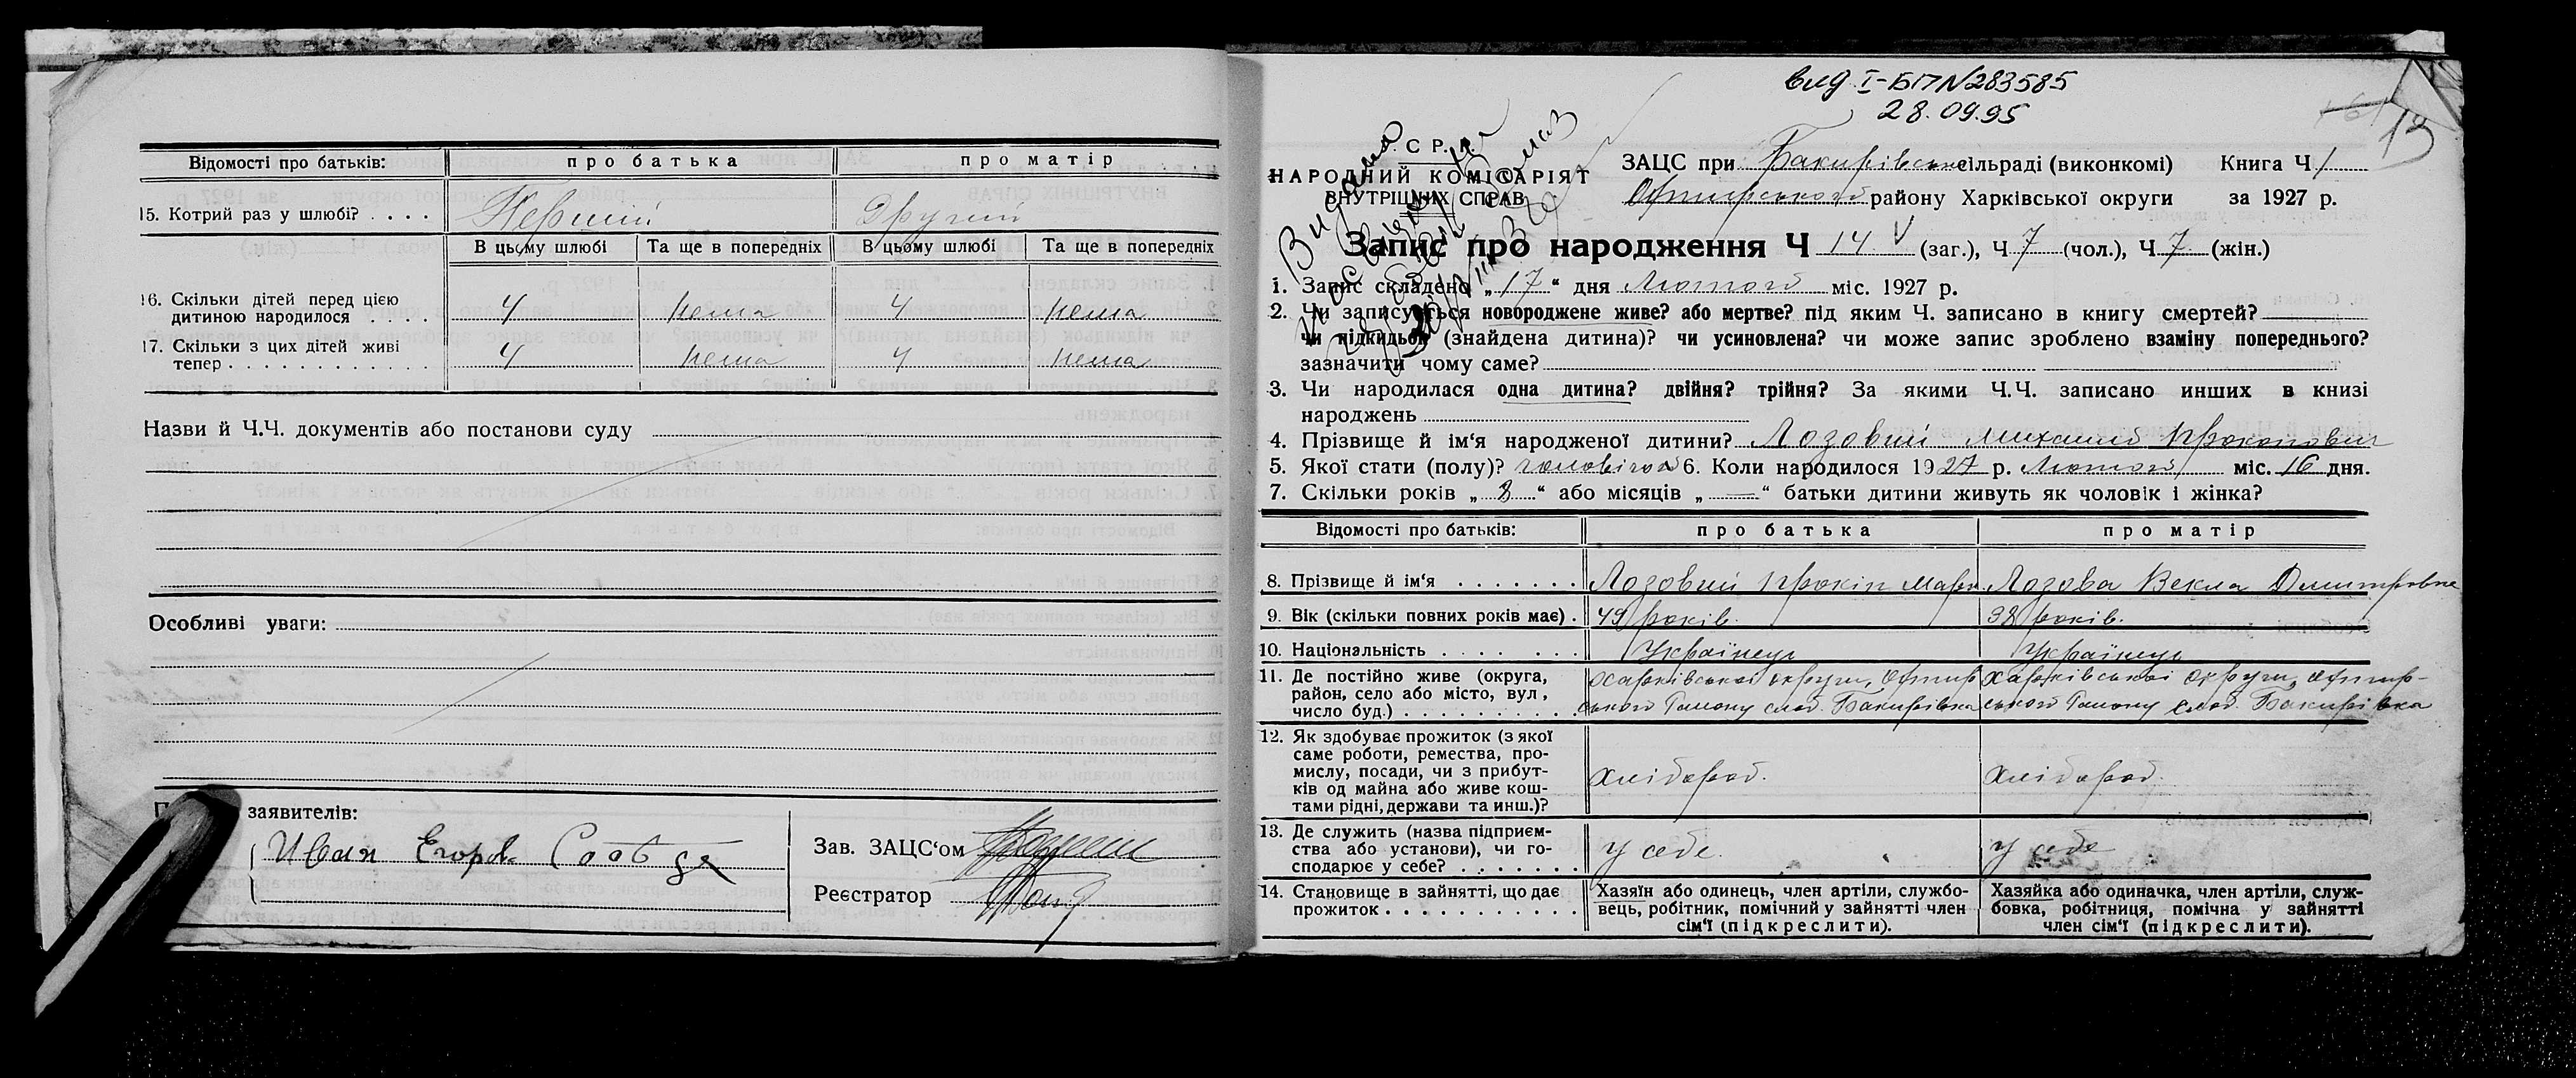 Відомості про батьків: про батька про матір
15. Котрий раз у шлюбі? . . . . Перший Другий
В цьому шлюбі Та ще в попередніх В цьому шлюбі Та ще в попередніх
16. Скільки дітей перед цією
дитиною народилося . . . . 4 нема 4 нема
17. Скільки з цих дітей живі
тепер . . . . . . . . . . . . 4 нема 4 нема
Назви й Ч.Ч. документів або постанови суду
Особливі уваги:
заявителів:
Иван Егоров
Зав. ЗАЦС'ом
Реєстратор
вид I-БП N283585
28.09.95
13
С Р.
НАРОДНИЙ КОМІСАРІЯТ
ВНУТРІШНИХ СПРАВ
Видано
ЗАЦС при Бакирівській сільраді (виконкомі) Книга Ч 1
Охтирського району Харківської округи за 1927 р.
Запис про народження Ч 14 (заг.), Ч 7 (чол.), Ч 7 (жін.)
1. Запис складено „ 17 “ дня Лютого міс. 1927 р.
2. Чи записується новороджене живе? або мертве? під яким Ч. записано в книгу смертей?
чи підкидьок (знайдена дитина)? чи усиновлена? чи може запис зроблено взаміну попереднього?
зазначити чому саме?
3. Чи народилася одна дитина? двійня? трійня? За якими Ч.Ч. записано инших в книзі
народжень
4. Прізвище й ім'я народженої дитини? Лозовий Михаил Прокопович
5. Якої стати (полу)? чоловічої 6. Коли народилося 1927 р. Лютого міс. 16 дня.
7. Скільки років „ 8 “ або місяців „ — “ батьки дитини живуть як чоловік і жінка?
Відомості про батьків: про батька про матір
8. Прізвище й ім'я . . . . . . . Лозовий Прокіп Марк. Лозова Векла Дмитровна
9. Вік (скільки повних років має) . 49 років. 38 років.
10. Національність . . . . . . . Українець Українець
11. Де постійно живе (округа, Харківської округи, Охтир Харківської округи, Охтир-
район, село або місто, вул., ського Району слоб. Бакирівка ського Району слоб. Бакирівка
число буд.) . . . . . . . . . .
12. Як здобуває прожиток (з якої
саме роботи, ремества, про-
мислу, посади, чи з прибут- хлібороб. хлібороб.
ків од майна або живе кош-
тами рідні, держави та инш.)?
13. Де служить (назва підприєм-
ства або установи), чи го- у себе. у себе
сподарює у себе? . . . . . . .
14. Становище в зайнятті, що дає Хазяїн або одинець, член артіли, службо- Хазяйка або одиначка, член артіли, служ-
прожиток . . . . . . . . . . . вець, робітник, помічний у зайнятті член бовка, робітниця, помічна у зайнятті
сім'ї (підкреслити). член сім'ї (підкреслити).